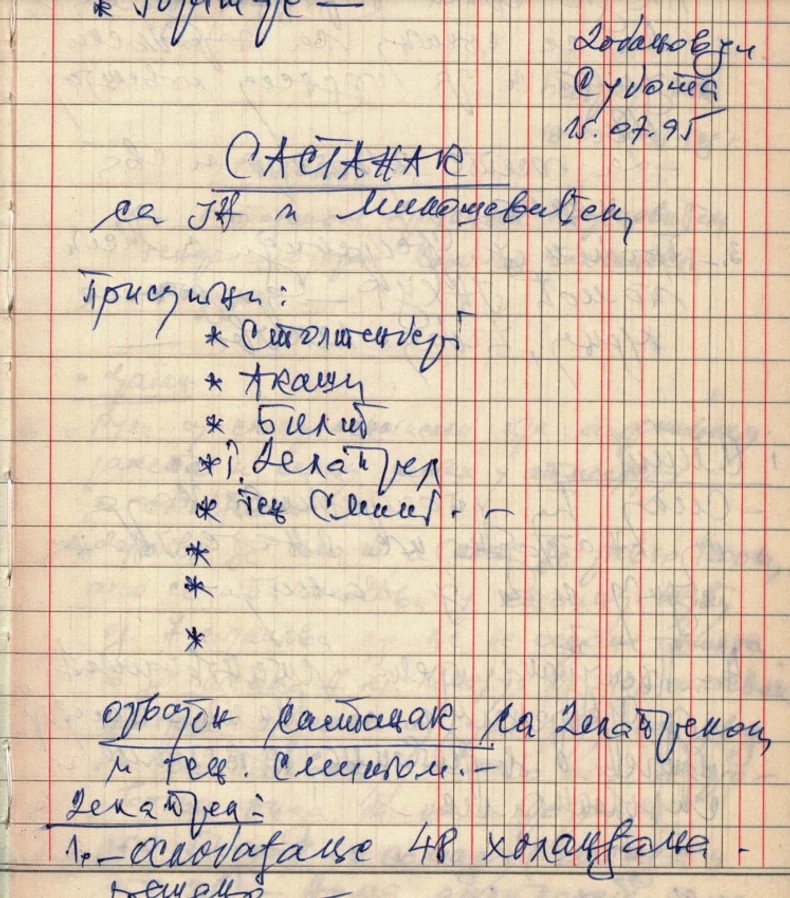 Добановци
Субота
15.07.95
САСТАНАК
са УН и Милошевићем
Присутни:
* Столтенберг
* Акаши
* Билт
* г. Де ла Прел
* Ген Смит. -
*
*
*
одвојен састанак са Де ла Прелом
и ген. Смитом. -
Де ла Прел:
1. - ослобађање 48 холанђана -